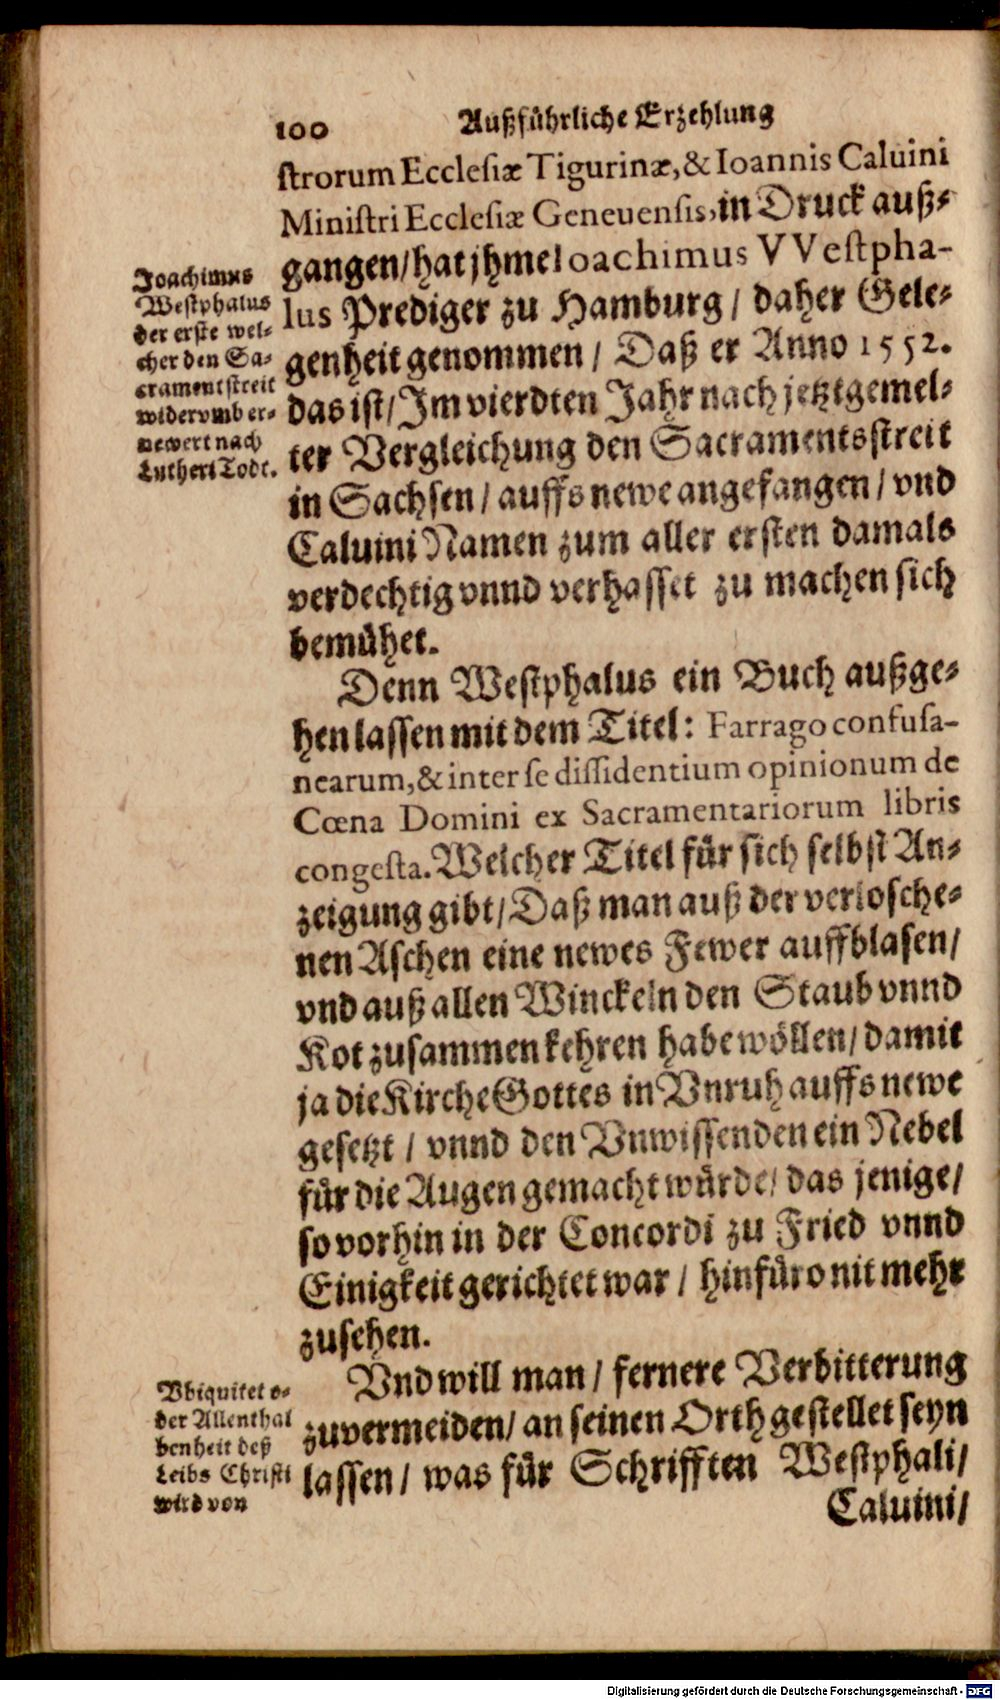 100 Außführliche Erzehlung
strorum Ecclesiæ Tigurinæ, & Ioannis Caluini
Ministri Ecclesiæ Geneuensis, in Druck auß-
gangen / hat jhme Ioachimus VVestpha-
lus Prediger zu Hamburg / daher Gele-
genheit genommen / Daß er Anno 1552.
das ist / Im vierdten Jahr nach jetztgemel-
ter Vergleichung den Sacramentsstreit
in Sachsen / auffs newe angefangen / vnd
Caluini Namen zum aller ersten damals
verdechtig vnnd verhasset zu machen sich
bemühet.
Joachimus
Westphalus
der erste wel-
cher den Sa-
cramentstreit
widervmb er-
newert nach
Lutheri Todt.
Denn Westphalus ein Buch außge-
hen lassen mit dem Titel: Farrago confusa-
nearum, & inter se dissidentium opinionum de
Cœna Domini ex Sacramentariorum libris
congesta. Welcher Titel für sich selbst An-
zeigung gibt / Daß man auß der verlosche-
nen Aschen eine newes Fewer auffblasen /
vnd auß allen Winckeln den Staub vnnd
Kot zusammen kehren habe wöllen / damit
ja die Kirche Gottes in Vnruh auffs newe
gesetzt / vnnd den Vnwissenden ein Nebel
für die Augen gemacht würde / das jenige /
so vorhin in der Concordi zu Fried vnnd
Einigkeit gerichtet war / hinfüro nit mehr
zusehen.
Vnd will man / fernere Verbitterung
zuvermeiden / an seinen Orth gestellet seyn
lassen / was für Schrifften Westphali /
Caluini /
Vbiquitet o-
der Allenthal
benheit deß
Leibs Christi
wird von
Digitalisierung gefördert durch die Deutsche Forschungsgemeinschaft - DFG